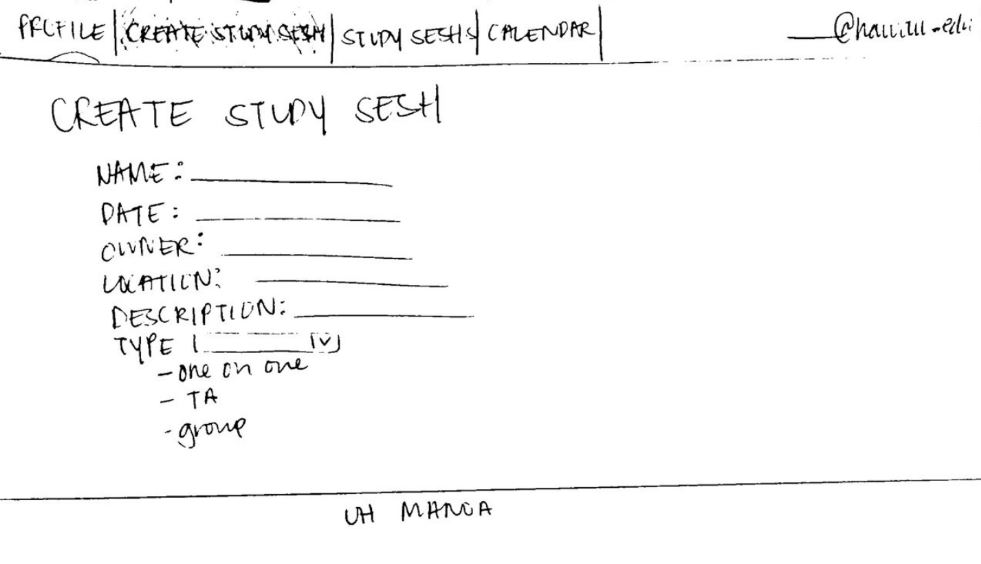 PROFILE | CREATE STUDY SESH | STUDY SESHS | CALENDAR | ____@hawaii.edu
CREATE STUDY SESH
NAME: ____
DATE: ____
OWNER: ____
LOCATION: ____
DESCRIPTION: ____
TYPE
- one on one
- TA
- group
UH MANOA